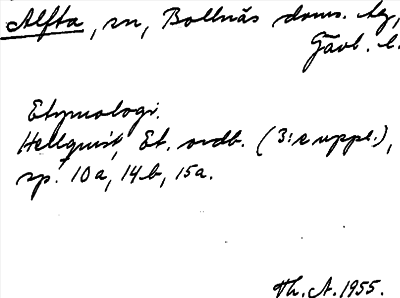 Alfta, sn, Bollnäs doms. tg,
Gävl. l.
Etymologi.
Hellquist, Et. ordb. (3:e uppl.),
sp. 10a, 14b, 15a.
Th. A. 1955.